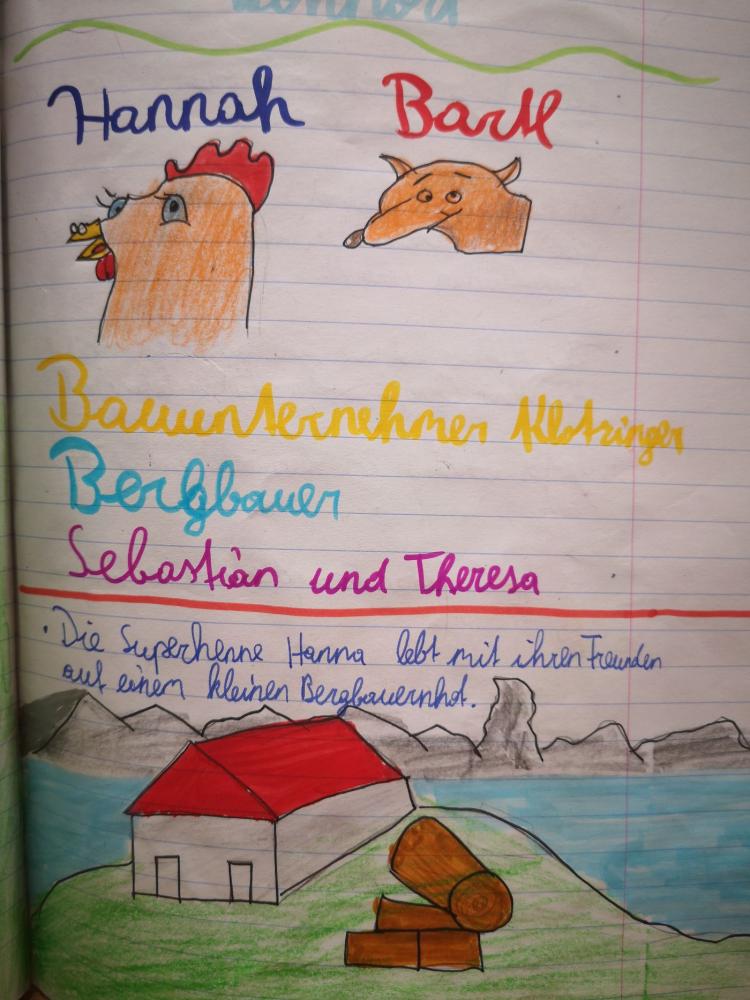 Hannah Bartl
Bauunternehmer Klotzinger
Bergbauer
Sebastian und Theresa
. Die Superhenne Hanna lebt mit ihren Freunden
auf einem kleinen Bergbauernhof.